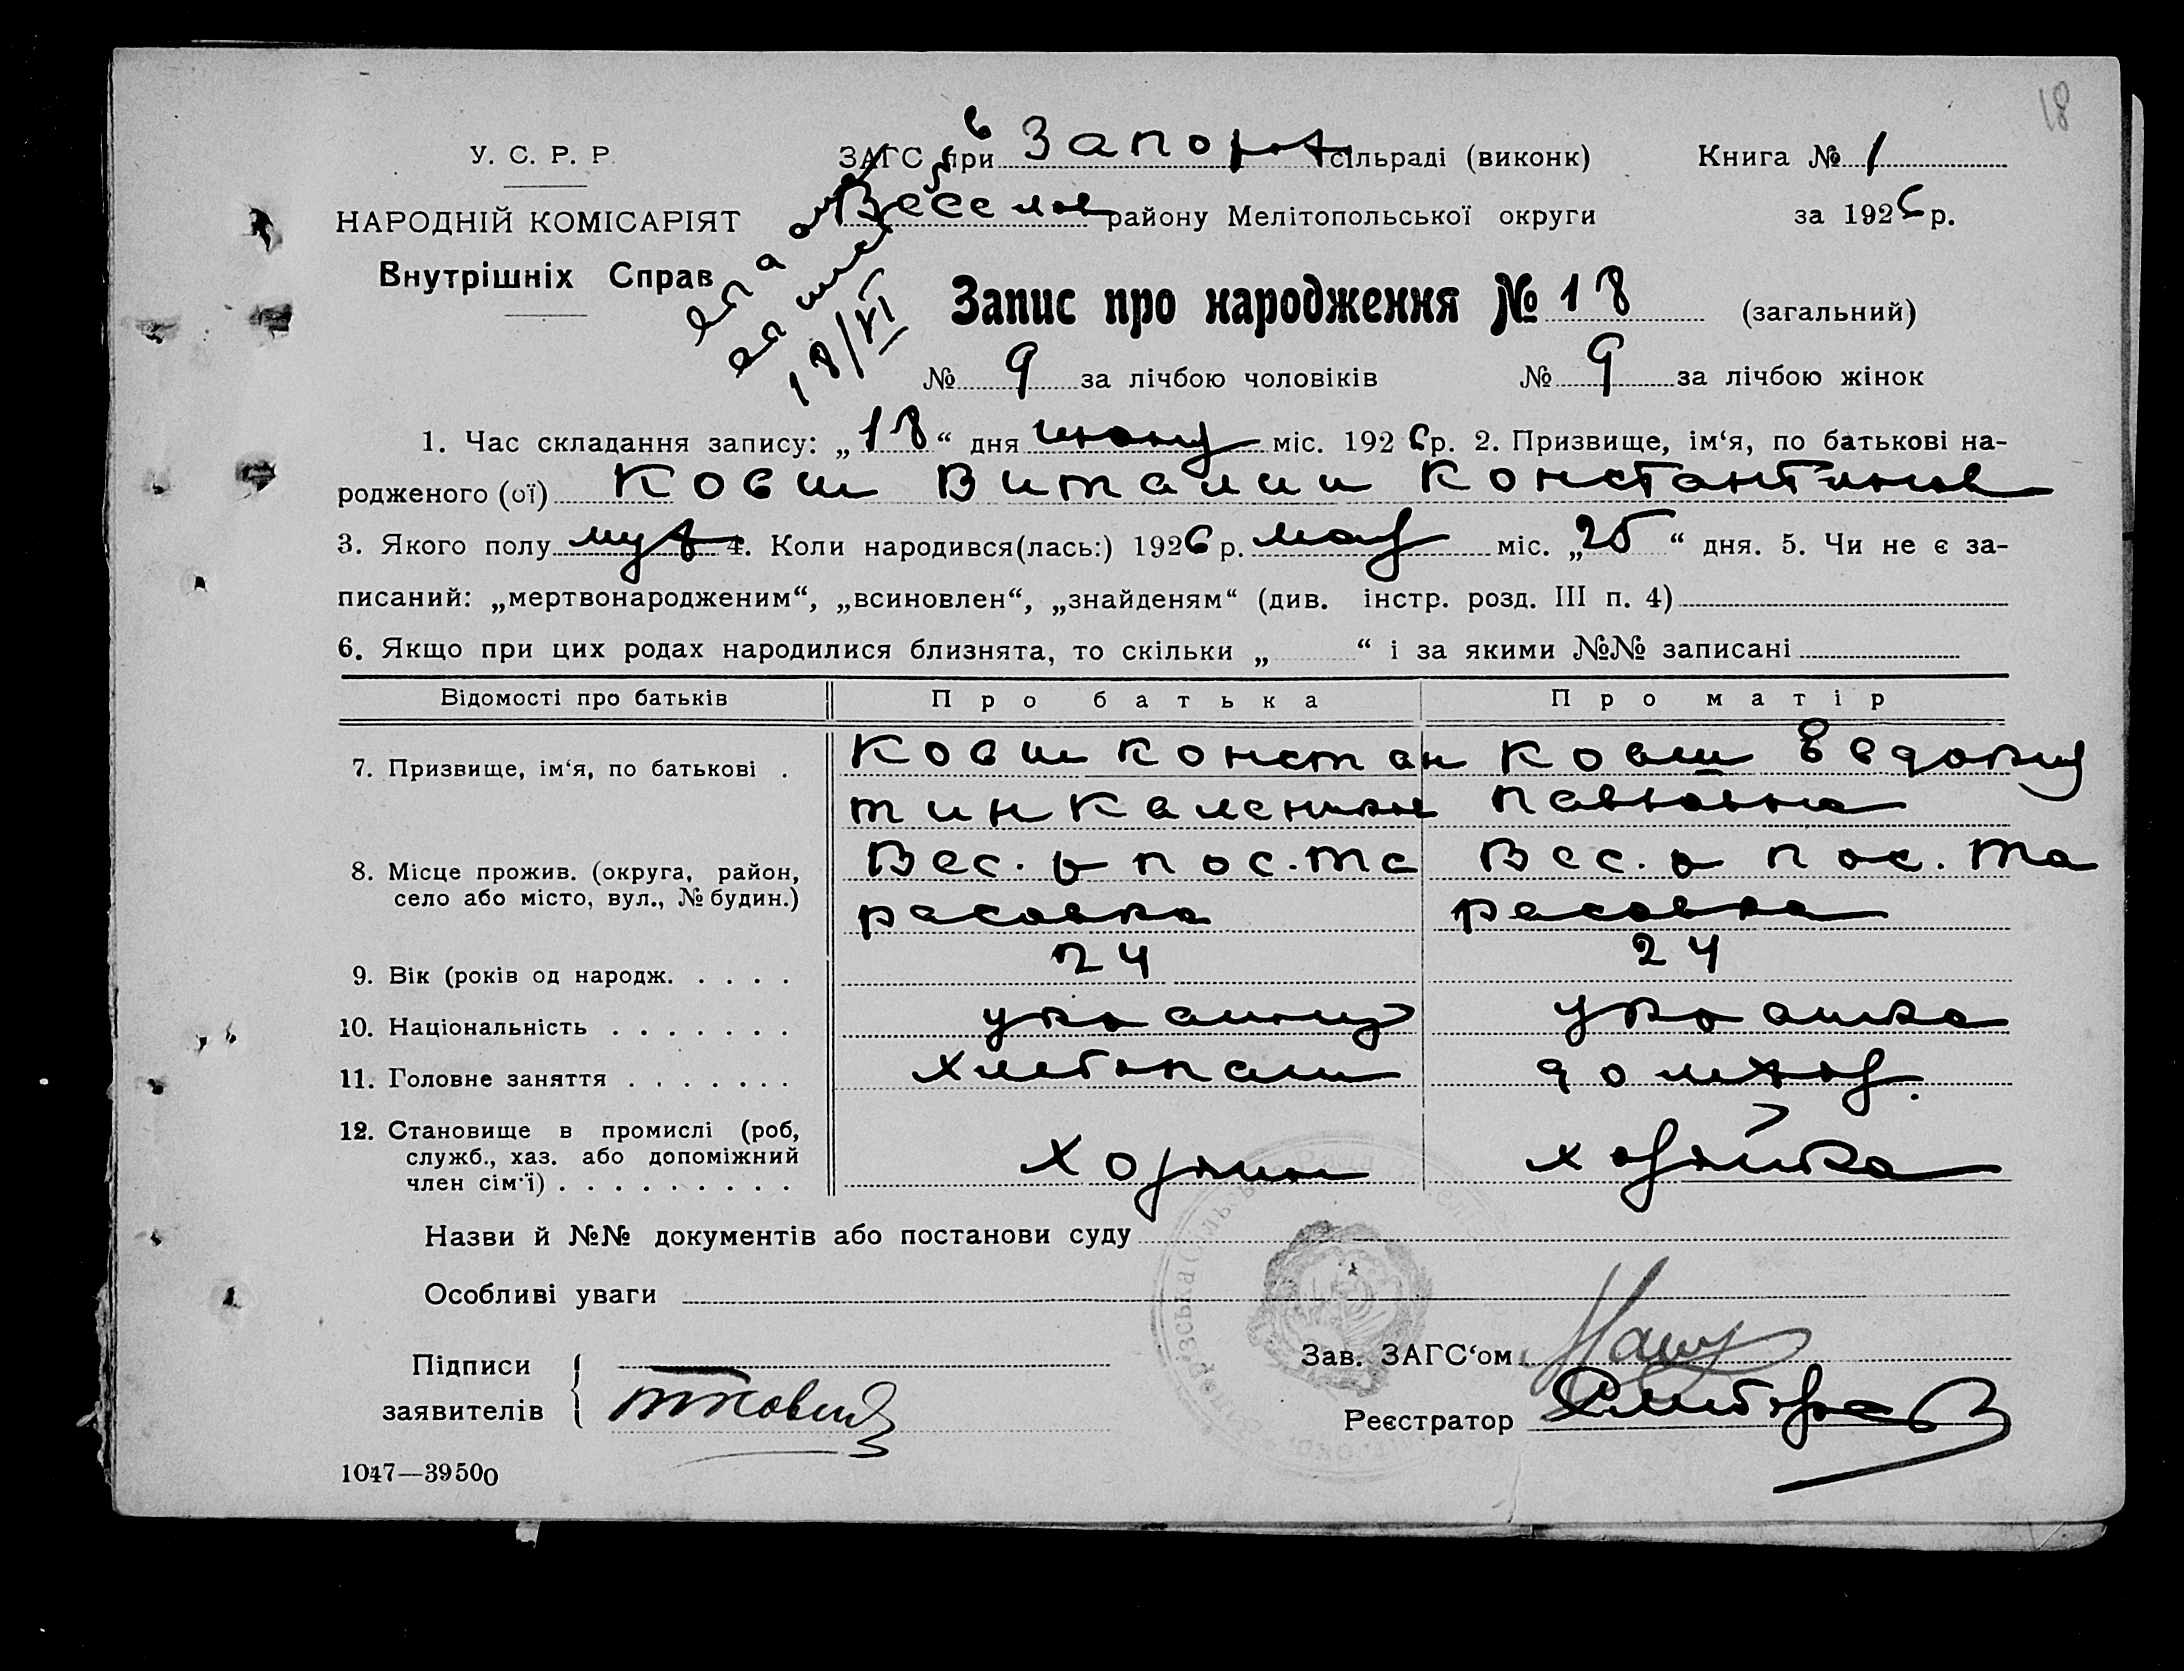 18
У. С. Р. Р.
ЗАГС при Запорож сільраді (виконк)
Книга № 1
НАРОДНІЙ КОМІСАРІЯТ
Веселов району Мелітопольської округи
за 1926 р.
Внутрішніх Справ
18/VI
Запис про народження № 18 (загальний)
№ 9 за лічбою чоловіків
№ 9 за лічбою жінок
1. Час складання запису: „18“ дня июня міс. 1926 р. 2. Призвище, ім‘я, по батькові на-
родженого (ої) Ковш Виталии Константинов
3. Якого полу муж 4. Коли народився(лась:) 1926 р. мая міс. „25“ дня. 5. Чи не є за-
писаний: „мертвонародженим“, „всиновлен“, „знайденям“ (див. інстр. розд. III п. 4)
6. Якщо при цих родах народилися близнята, то скільки „ “ і за якими №№ записані
Відомості про батьків
Про батька
Про матір
7. Призвище, ім‘я, по батькові .
Ковш Констан
тин
Ковш Евдокия
Павловна
8. Місце прожив. (округа, район,
село або місто, вул., № будин.)
Вес. р пос. Та
расовка
Вес. р пос. Та
расовка
9. Вік (років од народж. . . . .
24
24
10. Національність . . . . . . .
украинец
украинка
11. Головне заняття . . . . . . .
хлебопаш
домхоз.
12. Становище в промислі (роб,
служб., хаз. або допоміжний
член сім‘ї) . . . . . . . . .
хозяин
хозяйка
Назви й №№ документів або постанови суду
Особливі уваги
Підписи
заявителів
Зав. ЗАГС‘ом
Реєстратор
1047—39500